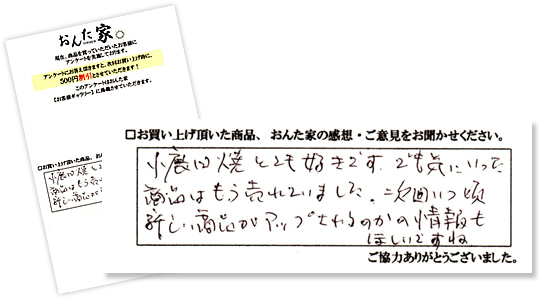 おんた家
現在、商品を買っていただいたお客様に
アンケートを実施しております。
アンケートにお答え頂きますと、次回お買い上げ時に、
500円割引とさせていただきます！
このアンケートはおんた家
【お客様ギャラリー】に掲載させていただきます。
□お買い上げ頂いた商品、おん
□お買い上げ頂いた商品、おんた家の感想・ご意見をお聞かせください。
小鹿田焼とても好きです。でも気にいった
商品はもう売れていました。次回いつ頃
新しい商品がアップされるのかの情報も
ほしいですね
ご協力ありがとうございました。